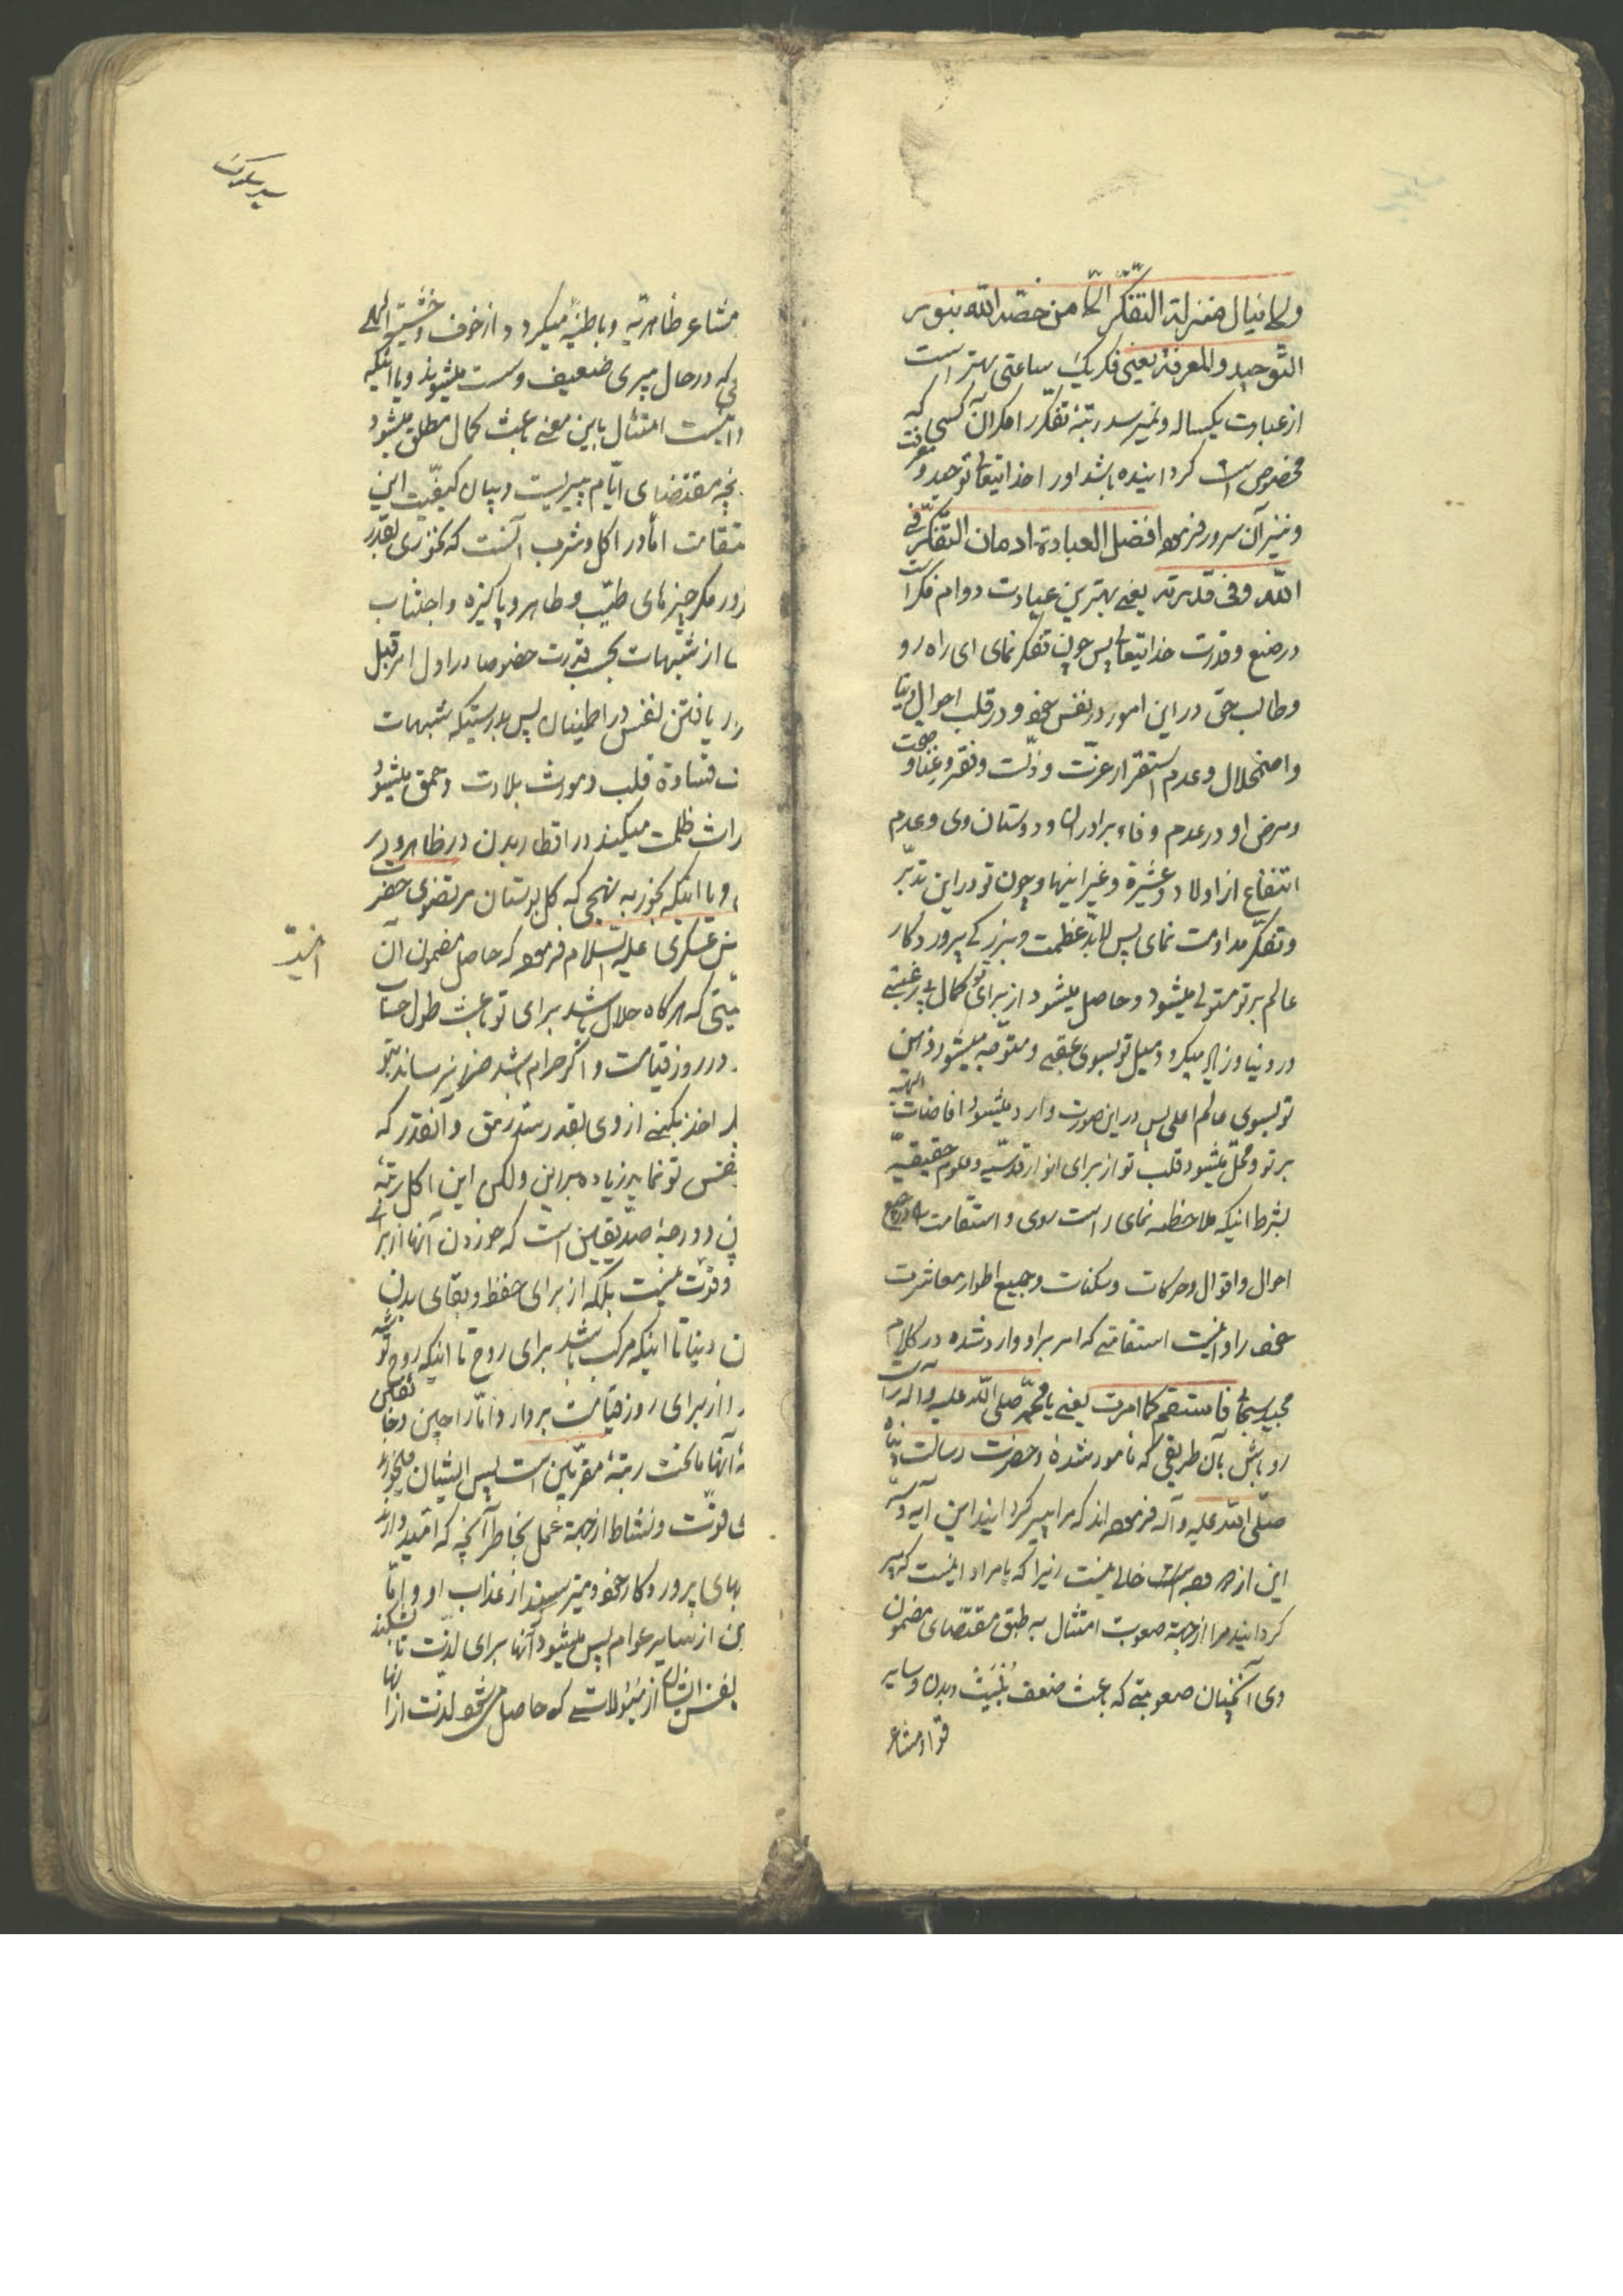 ولا ینال منزلة التفکر الا من خصّه الله بنور
التوحید والمعرفة یعنی فکر یک ساعتی بهتر است
از عبادت یکساله و نمیرسد رتبهٔ تفکر را مگر آن کسی که
مخصوص گردانیده باشد او را خدایتعالی بتوحید و معرفت
و نیز آن سرور فرموده افضل العبادة ادمان التفکر فی
الله وفی قدرته یعنی بهترین عبادت دوام فکر است
در صنع و قدرت خدایتعالی پس چون تفکر نمای ای راه رو
و طالب حق در این امور در نفس خود و در قلب احوال دنیا
و اضمحلال و عدم استقرار عزّت و ذلّت و فقر و غنا و صحت
و مرض او و در عدم وفاء برادران و دوستان وی و عدم
انتفاع از اولاد و عشیرة و غیر اینها و چون تو در این تدبّر
و تفکّر مداومت نمای پس لابدّ عظمت و بزرگی پروردگار
عالم بر تو مستولی میشود و حاصل میشود از برای تو کمال بی رغبتی
در دنیا و زاید میگردد میل تو بسوی عقبی و متوجّه میشود ذهن
تو بسوی عالم اعلی پس در این صورت وارد میشود افاضات الهیّه
بر تو و محلّ میشود قلب تو از برای انوار قدسیّه و علوم حقیقیّه
بشرط اینکه ملاحظه نمای راست روی و استقامت را در جمیع
احوال و اقوال و حرکات و سکنات و جمیع اطوار معاشرت
خود را و اینست استقامتی که امر برا و وارد شده در کلام
مجید سبحانی فاستقم کما امرت یعنی یا محمّد صلی الله علیه و آله راست
رو باش بآن طریقی که مامور شدهٔ و حضرت رسالت پناه
صلّی الله علیه و آله فرموده اند که مرا پیر گردانید این آیه و
این از دو وجه خالی نیست زیرا که یا مراد اینست که پیر
گردانید مرا از جهة صعوبت امتثال به طبق مقتضای مضمون
وی آنچنان صعوبتی که باعث ضعف بُنْیَت و بدن و سایر
قوا و مشاعر
سیر سلوک
مشاعر ظاهریّه و باطنیّه میگردد و از خوف و خشیت الهی
که در حال پیری ضعیف و سست میشوند و یا اینکه
اینست امتثال باین معنی باعث کمال مطلق میشود
مقتضای ایّام پیریست و بیان کیفیّت این
امّا در اکل و شرب آنست که نخوری بقدر
مگر چیزهای طیّب و طاهر و پاکیزه و اجتناب
از شبهات بحسب قدرت خصوصا در اول امر قبل
یافتن نفس در اطمینان پس بدرستیکه شبهات
قساوة قلب و مورث بلادت و حمق میشود
ظلمت میکند در اقطار بدن در ظاهر و در
و یا اینکه بخور به نهجی که گل بوستان مرتضوی حضرت
عسکری علیه السلام فرموده که حاصل مضمون آن
که هرگاه حلال باشد برای تو باعث طول حساب
در روز قیامت و اگر حرام باشد ضرر میرساند بتو
اخذ بکنی از وی بقدر سدّ رمق و آنقدر که
تو نماید زیاده بر این ولکن این اکل رتبهٔ
و درجهٔ صدّیقین است که خوردن آنها از برای
و قوّت نیست بلکه از برای حفظ و بقای بدن
دنیا تا اینکه مرکب باشد برای روح تا اینکه روح توشه
از برای روز قیامت بردارد و امّا راجین و خائفین
آنها ماتحت رتبهٔ مقرّبین است پس ایشان میخورند
قوّت و نشاط از جهة عمل بخاطر آنچه که امّید دارند
پروردگار خود و میترسند از عذاب او و امّا
از سایر عوام پس میشود آنها برای لذّت
نفس ایشان از که حاصل میشود لذّت از آنها